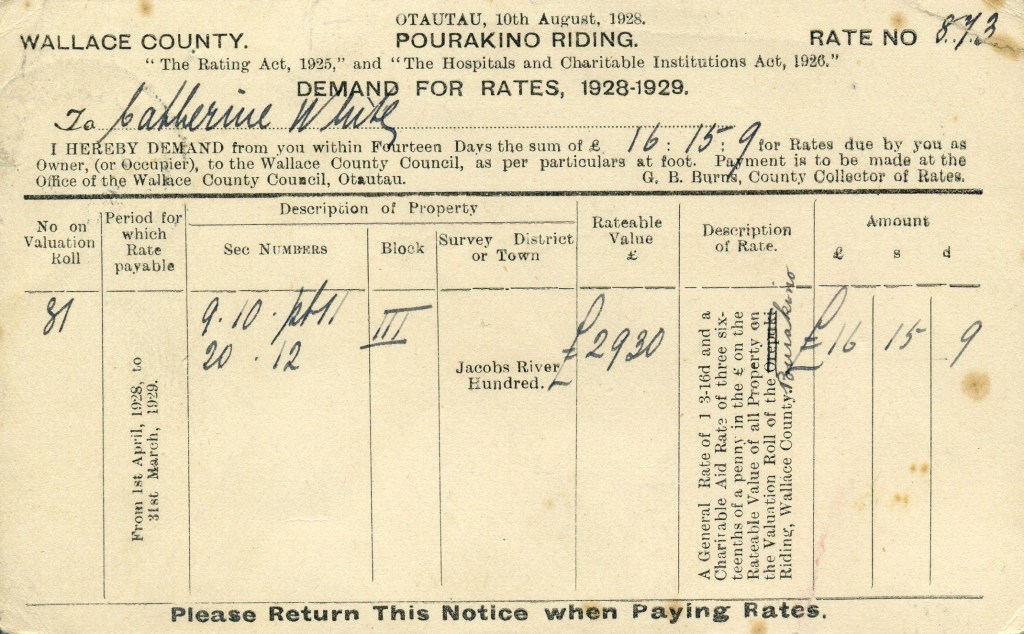 OTAUTAU, 10th August, 1928.
WALLACE COUNTY. POURAKINO RIDING. RATE NO 873
"The Rating Act, 1925," and "The Hospitals and Charitable Institutions Act, 1926."
DEMAND FOR RATES, 1928-1929.
To Catherine White
I HEREBY DEMAND from you within Fourteen Days the sum of £ 16 : 15 : 9 for Rates due by you as
Owner, (or Occupier), to the Wallace County Council, as per particulars at foot. Payment is to be made at the
Office of the Wallace County Council, Otautau. G. B. Burns, County Collector of Rates.
No on
Valuation
Roll
Period for
which
Rate
payable
Description of Property
Sec NUMBERS
Block
Survey District
or Town
Rateable
Value
£
Description
of Rate.
Amount
£ s d
81
From 1st April, 1928, to
31st March, 1929.
9. 10. pt 11
20. 12
III
Jacobs River
Hundred.
£2930
A General Rate of 1 3-16d and a
Charitable Aid Rate of three six-
teenths of a penny in the £ on the
Rateable Value of all Property on
the Valuation Roll of the Orepuki
Pourakino
Riding, Wallace County.
£16 15 9
Please Return This Notice when Paying Rates.